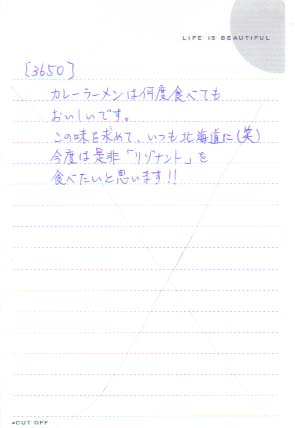 LIFE IS BEAUTIFUL
[3650]
カレーラーメンは何度食べても
おいしいです。
この味を求めて、いつも北海道に(笑)
今度は是非「リゾナント」を
食べたいと思います!!
CUT OFF